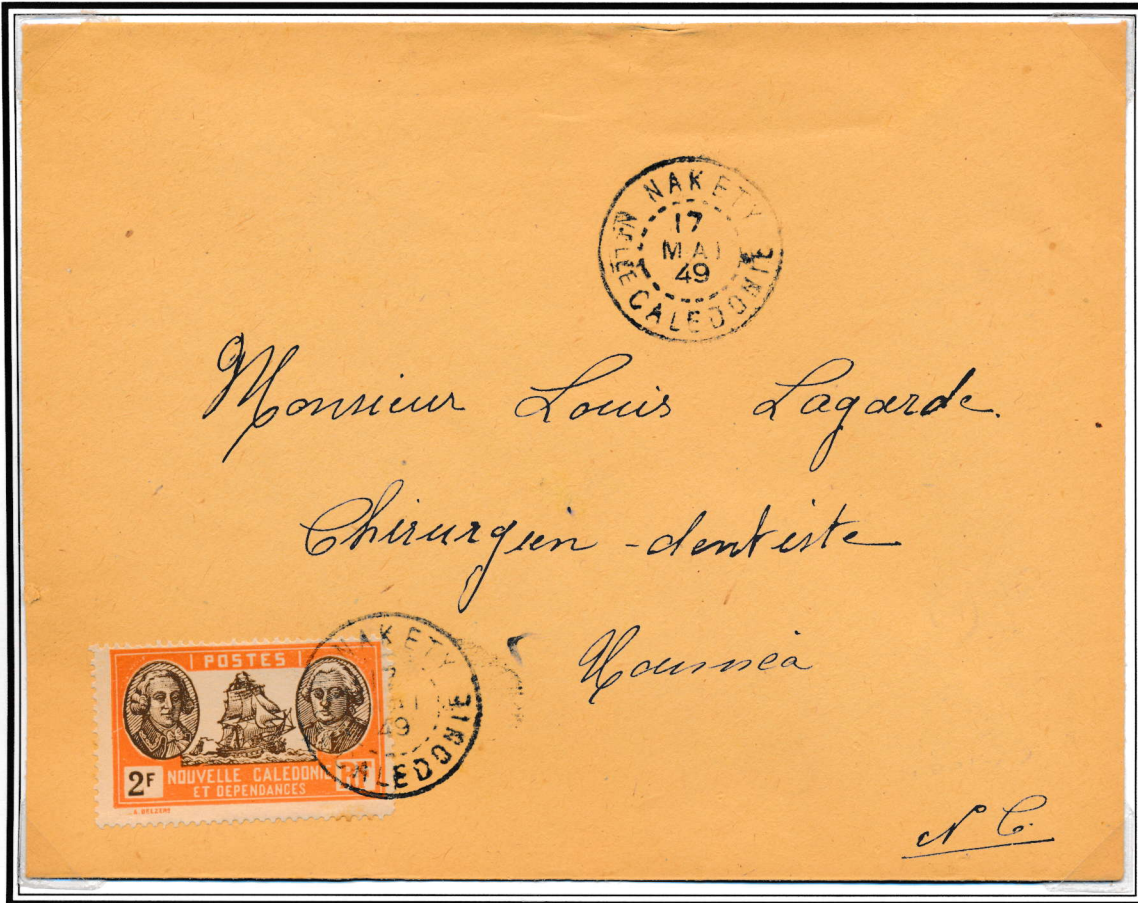 NAKETY
17
MAI
49
NLLE CALEDONIE
Monsieur Louis Lagarde.
Chirurgien-dentiste
Nouméa
N C.
POSTES
2F
NOUVELLE CALEDONIE
ET DEPENDANCES
NAKETY
49
CALEDONIE